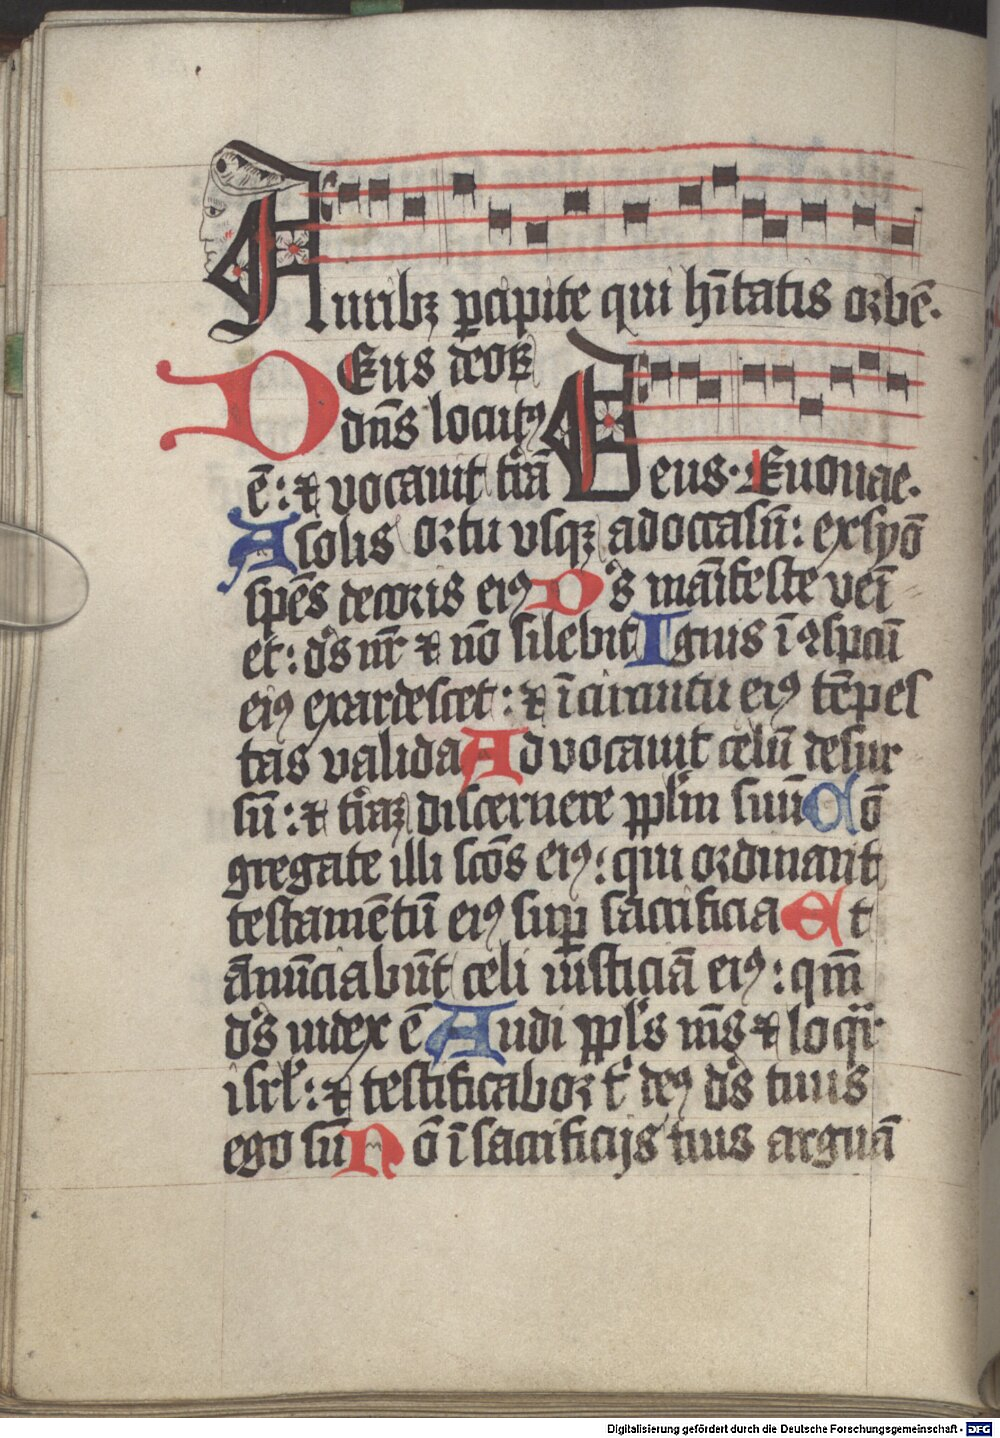 Aurib⁊ ꝑcipite qui hītatis orbē.
DEus deoꝝ
dn̄s locut⁹
ē: ⁊ vocauit tr̄ā Deus. Euouae.
A solis ortu vsq⁊ ad occasū: ex syō
spēs decoris ei⁹ D's māifeste vei
et: d's nr̄ ⁊ nō silebit Ignis ī ↄspcū
ei⁹ exardescet: ⁊ ī circuitu ei⁹ tēpes
tas valida Aduocauit celū desur
sū: ⁊ tr̄aꝫ discernere ppl'm suū Cō
gregate illi scōs ei⁹: qui ordinant
testamētū ei⁹ suꝑ sacrificia Et
ānūciabūt celi iusticiā ei⁹: qm̄
d's iudex ē Audi ppl's m̄s ⁊ loqr
isrl': ⁊ testificabor t' de⁹ d's tuus
ego sū Nō ī sacrificijs tuis arguā
Digitalisierung gefördert durch die Deutsche Forschungsgemeinschaft - DFG